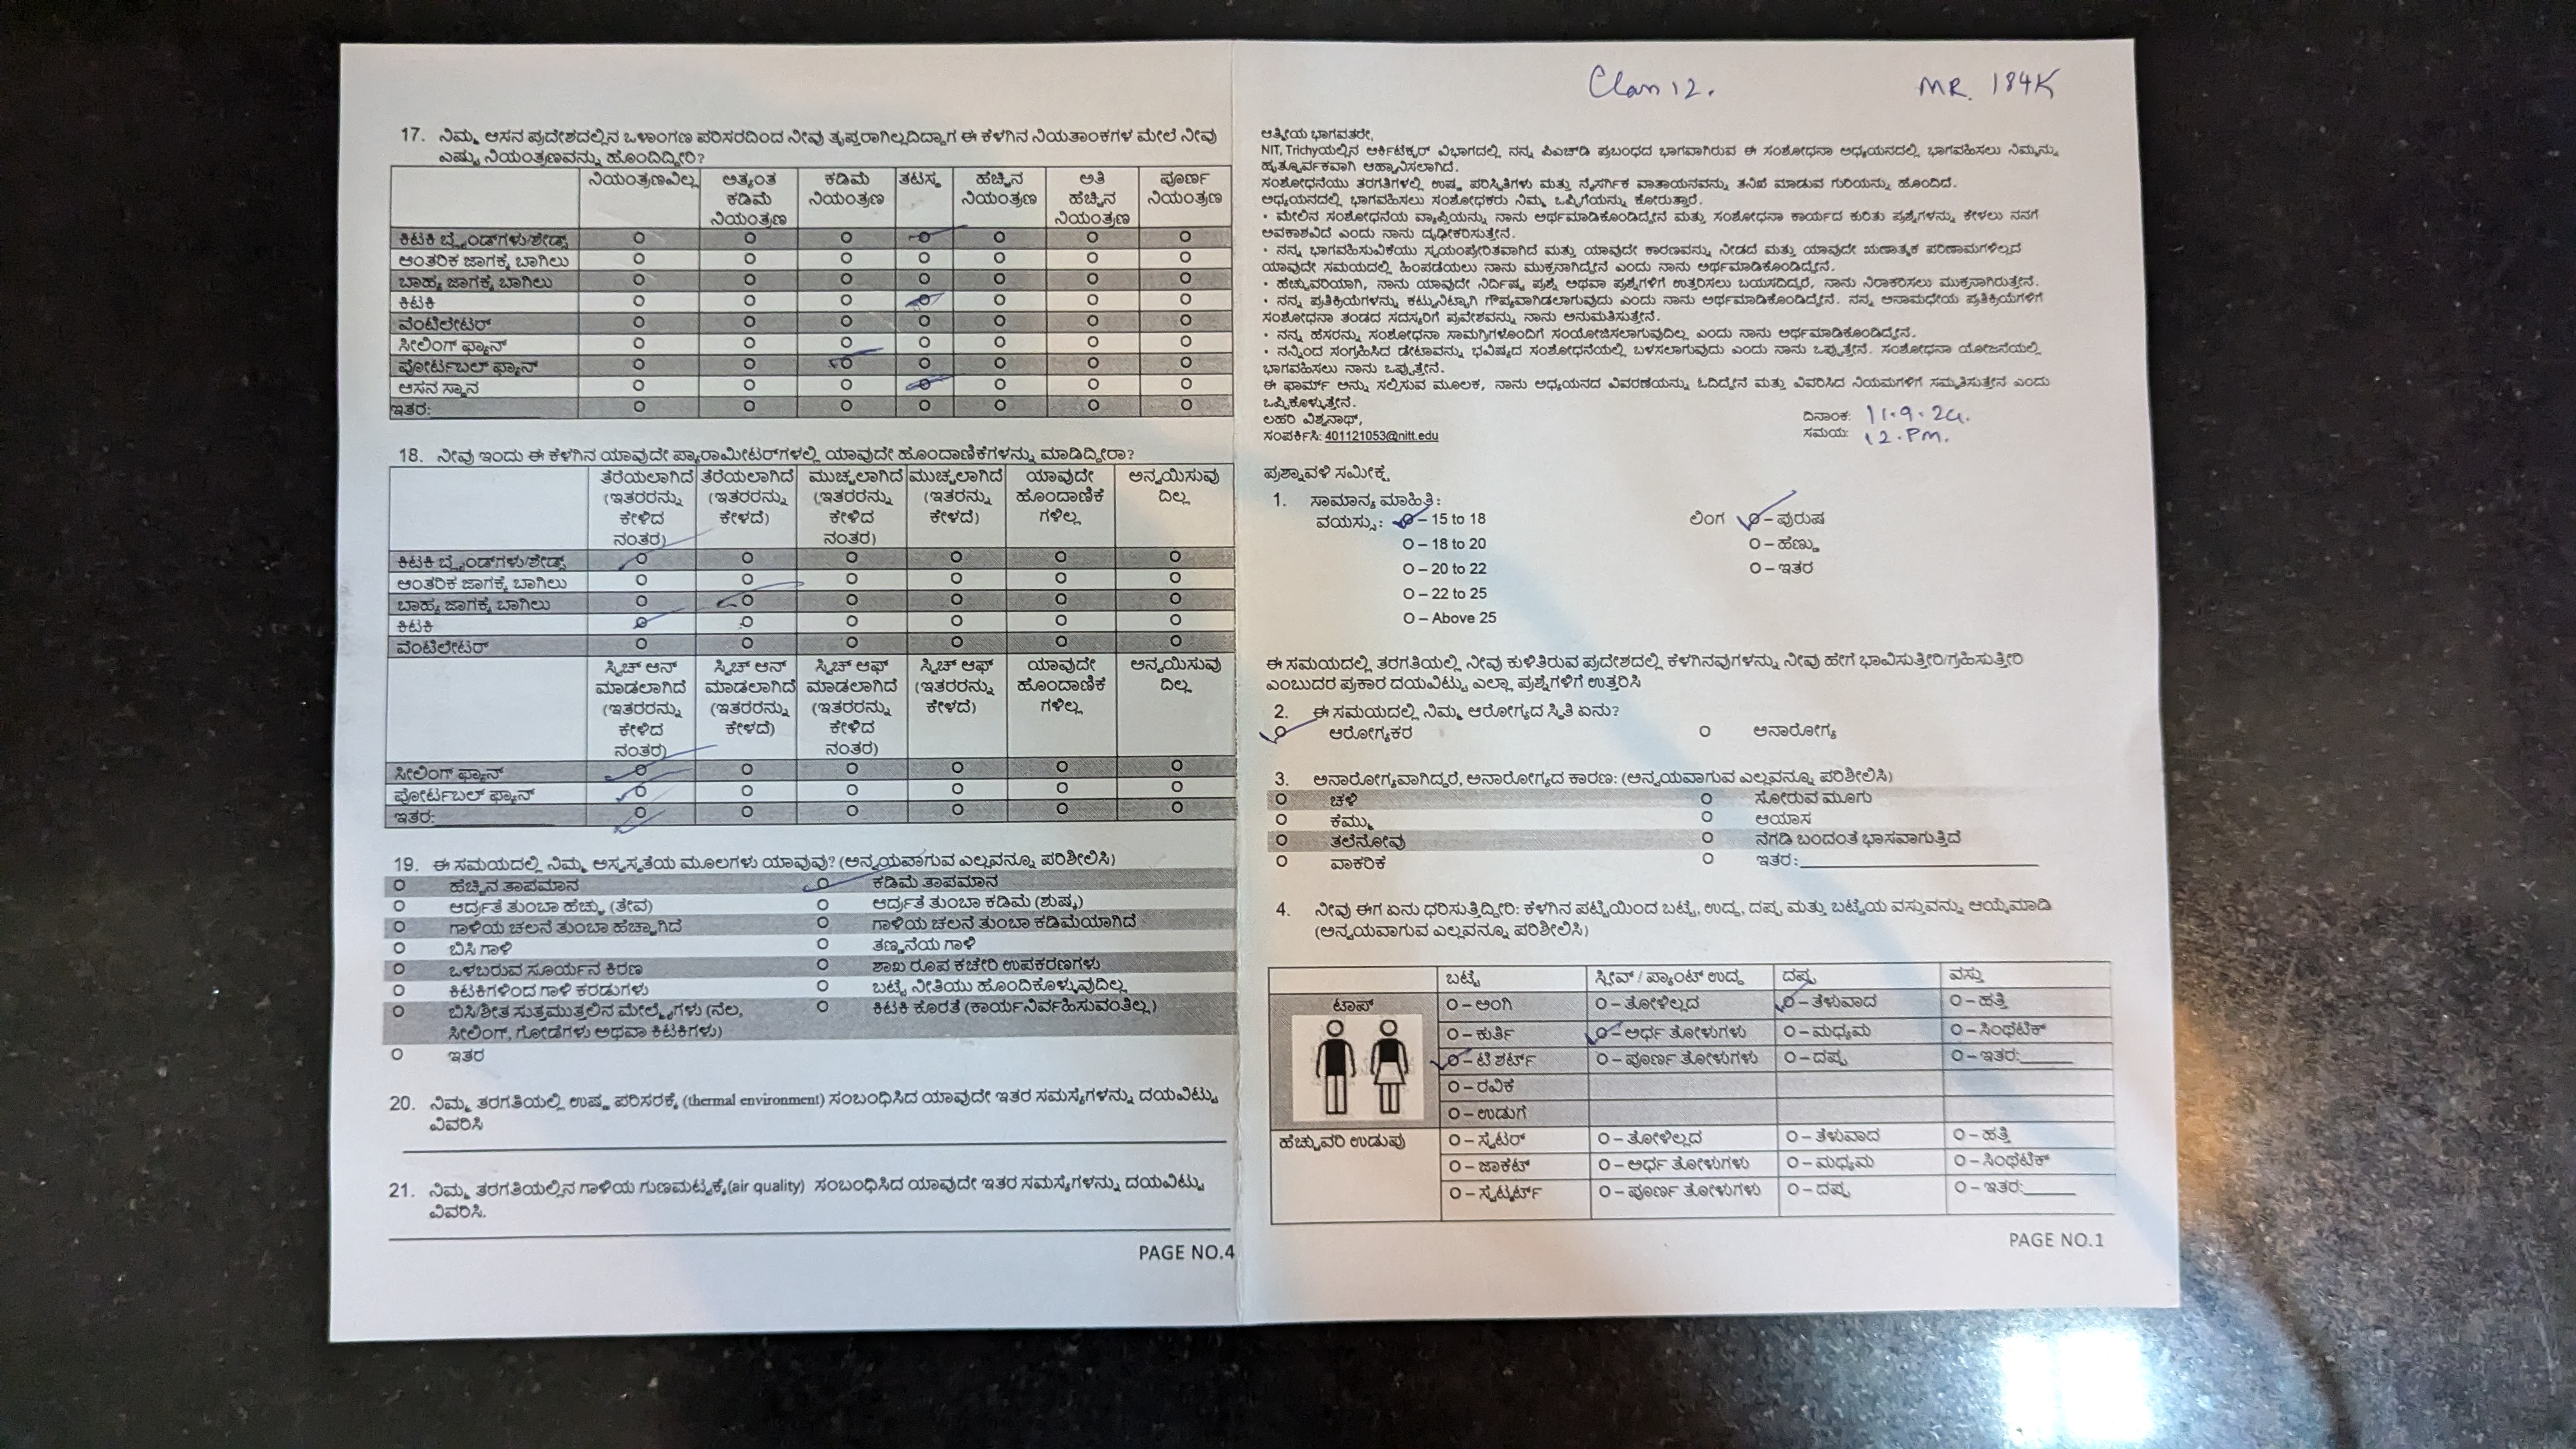 17. ನಿಮ್ಮ ಆಸನ ಪ್ರದೇಶದಲ್ಲಿನ ಒಳಾಂಗಣ ಪರಿಸರದಿಂದ ನೀವು ತೃಪ್ತರಾಗಿಲ್ಲದಿದ್ದಾಗ ಈ ಕೆಳಗಿನ ನಿಯತಾಂಕಗಳ ಮೇಲೆ ನೀವು
ಎಷ್ಟು ನಿಯಂತ್ರಣವನ್ನು ಹೊಂದಿದ್ದೀರಿ?
ನಿಯಂತ್ರಣವಿಲ್ಲ ಅತ್ಯಂತ ಕಡಿಮೆ ತಟಸ್ಥ ಹೆಚ್ಚಿನ ಅತಿ ಪೂರ್ಣ
ಕಡಿಮೆ ನಿಯಂತ್ರಣ ನಿಯಂತ್ರಣ ಹೆಚ್ಚಿನ ನಿಯಂತ್ರಣ
ನಿಯಂತ್ರಣ ನಿಯಂತ್ರಣ
ಕಿಟಕಿ ಬ್ಲೈಂಡ್‌ಗಳು/ಶೇಡ್ಸ್
ಆಂತರಿಕ ಜಾಗಕ್ಕೆ ಬಾಗಿಲು
ಬಾಹ್ಯ ಜಾಗಕ್ಕೆ ಬಾಗಿಲು
ಕಿಟಕಿ
ವೆಂಟಿಲೇಟರ್
ಸೀಲಿಂಗ್ ಫ್ಯಾನ್
ಪೋರ್ಟಬಲ್ ಫ್ಯಾನ್
ಆಸನ ಸ್ಥಾನ
ಇತರ:
18. ನೀವು ಇಂದು ಈ ಕೆಳಗಿನ ಯಾವುದೇ ಪ್ಯಾರಾಮೀಟರ್‌ಗಳಲ್ಲಿ ಯಾವುದೇ ಹೊಂದಾಣಿಕೆಗಳನ್ನು ಮಾಡಿದ್ದೀರಾ?
ತೆರೆಯಲಾಗಿದೆ ತೆರೆಯಲಾಗಿದೆ ಮುಚ್ಚಲಾಗಿದೆ ಮುಚ್ಚಲಾಗಿದೆ ಯಾವುದೇ ಅನ್ವಯಿಸುವು
(ಇತರರನ್ನು (ಇತರರನ್ನು (ಇತರರನ್ನು (ಇತರರನ್ನು ಹೊಂದಾಣಿಕೆ ದಿಲ್ಲ
ಕೇಳಿದ ಕೇಳದೆ) ಕೇಳಿದ ಕೇಳದೆ) ಗಳಿಲ್ಲ
ನಂತರ) ನಂತರ)
ಕಿಟಕಿ ಬ್ಲೈಂಡ್‌ಗಳು/ಶೇಡ್ಸ್
ಆಂತರಿಕ ಜಾಗಕ್ಕೆ ಬಾಗಿಲು
ಬಾಹ್ಯ ಜಾಗಕ್ಕೆ ಬಾಗಿಲು
ಕಿಟಕಿ
ವೆಂಟಿಲೇಟರ್
ಸ್ವಿಚ್ ಆನ್ ಸ್ವಿಚ್ ಆನ್ ಸ್ವಿಚ್ ಆಫ್ ಸ್ವಿಚ್ ಆಫ್ ಯಾವುದೇ ಅನ್ವಯಿಸುವು
ಮಾಡಲಾಗಿದೆ ಮಾಡಲಾಗಿದೆ ಮಾಡಲಾಗಿದೆ (ಇತರರನ್ನು ಹೊಂದಾಣಿಕೆ ದಿಲ್ಲ
(ಇತರರನ್ನು (ಇತರರನ್ನು (ಇತರರನ್ನು ಕೇಳದೆ) ಗಳಿಲ್ಲ
ಕೇಳಿದ ಕೇಳದೆ) ಕೇಳಿದ
ನಂತರ) ನಂತರ)
ಸೀಲಿಂಗ್ ಫ್ಯಾನ್
ಪೋರ್ಟಬಲ್ ಫ್ಯಾನ್
ಇತರ:
19. ಈ ಸಮಯದಲ್ಲಿ ನಿಮ್ಮ ಅಸ್ವಸ್ಥತೆಯ ಮೂಲಗಳು ಯಾವುವು? (ಅನ್ವಯವಾಗುವ ಎಲ್ಲವನ್ನೂ ಪರಿಶೀಲಿಸಿ)
ಹೆಚ್ಚಿನ ತಾಪಮಾನ ಕಡಿಮೆ ತಾಪಮಾನ
ಆರ್ದ್ರತೆ ತುಂಬಾ ಹೆಚ್ಚು (ತೇವ) ಆರ್ದ್ರತೆ ತುಂಬಾ ಕಡಿಮೆ (ಶುಷ್ಕ)
ಗಾಳಿಯ ಚಲನೆ ತುಂಬಾ ಹೆಚ್ಚಾಗಿದೆ ಗಾಳಿಯ ಚಲನೆ ತುಂಬಾ ಕಡಿಮೆಯಾಗಿದೆ
ಬಿಸಿ ಗಾಳಿ ತಣ್ಣನೆಯ ಗಾಳಿ
ಒಳಬರುವ ಸೂರ್ಯನ ಕಿರಣ ಶಾಖ ರೂಪ ಕಚೇರಿ ಉಪಕರಣಗಳು
ಕಿಟಕಿಗಳಿಂದ ಗಾಳಿ ಕರಡುಗಳು ಬಟ್ಟೆ ನೀತಿಯು ಹೊಂದಿಕೊಳ್ಳುವುದಿಲ್ಲ
ಬಿಸಿ/ಶೀತ ಸುತ್ತಮುತ್ತಲಿನ ಮೇಲ್ಮೈಗಳು (ನೆಲ, ಕಿಟಕಿ ಕೊರತೆ (ಕಾರ್ಯನಿರ್ವಹಿಸುವಂತಿಲ್ಲ)
ಸೀಲಿಂಗ್, ಗೋಡೆಗಳು ಅಥವಾ ಕಿಟಕಿಗಳು)
ಇತರ
20. ನಿಮ್ಮ ತರಗತಿಯಲ್ಲಿ ಉಷ್ಣ ಪರಿಸರಕ್ಕೆ (thermal environment) ಸಂಬಂಧಿಸಿದ ಯಾವುದೇ ಇತರ ಸಮಸ್ಯೆಗಳನ್ನು ದಯವಿಟ್ಟು
ವಿವರಿಸಿ
21. ನಿಮ್ಮ ತರಗತಿಯಲ್ಲಿನ ಗಾಳಿಯ ಗುಣಮಟ್ಟಕ್ಕೆ(air quality) ಸಂಬಂಧಿಸಿದ ಯಾವುದೇ ಇತರ ಸಮಸ್ಯೆಗಳನ್ನು ದಯವಿಟ್ಟು
ವಿವರಿಸಿ.
PAGE NO.4
Clan 12. MR. 184K
ಆತ್ಮೀಯ ಭಾಗವತರೇ,
NIT, Trichyಯಲ್ಲಿನ ಆರ್ಕಿಟೆಕ್ಚರ್ ವಿಭಾಗದಲ್ಲಿ ನನ್ನ ಪಿಎಚ್‌ಡಿ ಪ್ರಬಂಧದ ಭಾಗವಾಗಿರುವ ಈ ಸಂಶೋಧನಾ ಅಧ್ಯಯನದಲ್ಲಿ ಭಾಗವಹಿಸಲು ನಿಮ್ಮನ್ನು
ಹೃತ್ಪೂರ್ವಕವಾಗಿ ಆಹ್ವಾನಿಸಲಾಗಿದೆ.
ಸಂಶೋಧನೆಯು ತರಗತಿಗಳಲ್ಲಿ ಉಷ್ಣ ಪರಿಸ್ಥಿತಿಗಳು ಮತ್ತು ನೈಸರ್ಗಿಕ ವಾತಾಯನವನ್ನು ತನಿಖೆ ಮಾಡುವ ಗುರಿಯನ್ನು ಹೊಂದಿದೆ.
ಅಧ್ಯಯನದಲ್ಲಿ ಭಾಗವಹಿಸಲು ಸಂಶೋಧಕರು ನಿಮ್ಮ ಒಪ್ಪಿಗೆಯನ್ನು ಕೋರುತ್ತಾರೆ.
• ಮೇಲಿನ ಸಂಶೋಧನೆಯ ವ್ಯಾಪ್ತಿಯನ್ನು ನಾನು ಅರ್ಥಮಾಡಿಕೊಂಡಿದ್ದೇನೆ ಮತ್ತು ಸಂಶೋಧನಾ ಕಾರ್ಯದ ಕುರಿತು ಪ್ರಶ್ನೆಗಳನ್ನು ಕೇಳಲು ನನಗೆ
ಅವಕಾಶವಿದೆ ಎಂದು ನಾನು ದೃಢೀಕರಿಸುತ್ತೇನೆ.
• ನನ್ನ ಭಾಗವಹಿಸುವಿಕೆಯು ಸ್ವಯಂಪ್ರೇರಿತವಾಗಿದೆ ಮತ್ತು ಯಾವುದೇ ಕಾರಣವನ್ನು ನೀಡದೆ ಮತ್ತು ಯಾವುದೇ ಋಣಾತ್ಮಕ ಪರಿಣಾಮಗಳಿಲ್ಲದೆ
ಯಾವುದೇ ಸಮಯದಲ್ಲಿ ಹಿಂಪಡೆಯಲು ನಾನು ಮುಕ್ತನಾಗಿದ್ದೇನೆ ಎಂದು ನಾನು ಅರ್ಥಮಾಡಿಕೊಂಡಿದ್ದೇನೆ.
• ಹೆಚ್ಚುವರಿಯಾಗಿ, ನಾನು ಯಾವುದೇ ನಿರ್ದಿಷ್ಟ ಪ್ರಶ್ನೆ ಅಥವಾ ಪ್ರಶ್ನೆಗಳಿಗೆ ಉತ್ತರಿಸಲು ಬಯಸದಿದ್ದರೆ, ನಾನು ನಿರಾಕರಿಸಲು ಮುಕ್ತನಾಗಿರುತ್ತೇನೆ.
• ನನ್ನ ಪ್ರತಿಕ್ರಿಯೆಗಳನ್ನು ಕಟ್ಟುನಿಟ್ಟಾಗಿ ಗೌಪ್ಯವಾಗಿಡಲಾಗುವುದು ಎಂದು ನಾನು ಅರ್ಥಮಾಡಿಕೊಂಡಿದ್ದೇನೆ. ನನ್ನ ಅನಾಮಧೇಯ ಪ್ರತಿಕ್ರಿಯೆಗಳಿಗೆ
ಸಂಶೋಧನಾ ತಂಡದ ಸದಸ್ಯರಿಗೆ ಪ್ರವೇಶವನ್ನು ನಾನು ಅನುಮತಿಸುತ್ತೇನೆ.
• ನನ್ನ ಹೆಸರನ್ನು ಸಂಶೋಧನಾ ಸಾಮಗ್ರಿಗಳೊಂದಿಗೆ ಸಂಯೋಜಿಸಲಾಗುವುದಿಲ್ಲ ಎಂದು ನಾನು ಅರ್ಥಮಾಡಿಕೊಂಡಿದ್ದೇನೆ.
• ನನ್ನಿಂದ ಸಂಗ್ರಹಿಸಿದ ಡೇಟಾವನ್ನು ಭವಿಷ್ಯದ ಸಂಶೋಧನೆಯಲ್ಲಿ ಬಳಸಲಾಗುವುದು ಎಂದು ನಾನು ಒಪ್ಪುತ್ತೇನೆ. ಸಂಶೋಧನಾ ಯೋಜನೆಯಲ್ಲಿ
ಭಾಗವಹಿಸಲು ನಾನು ಒಪ್ಪುತ್ತೇನೆ.
ಈ ಫಾರ್ಮ್ ಅನ್ನು ಸಲ್ಲಿಸುವ ಮೂಲಕ, ನಾನು ಅಧ್ಯಯನದ ವಿವರಣೆಯನ್ನು ಓದಿದ್ದೇನೆ ಮತ್ತು ವಿವರಿಸಿದ ನಿಯಮಗಳಿಗೆ ಸಮ್ಮತಿಸುತ್ತೇನೆ ಎಂದು
ಒಪ್ಪಿಕೊಳ್ಳುತ್ತೇನೆ.
ಲಹರಿ ವಿಶ್ವನಾಥ್, ದಿನಾಂಕ: 11.9.24.
ಸಂಪರ್ಕಿಸಿ: 401121053@nitt.edu ಸಮಯ: 12.Pm.
ಪ್ರಶ್ನಾವಳಿ ಸಮೀಕ್ಷೆ
1. ಸಾಮಾನ್ಯ ಮಾಹಿತಿ:
ವಯಸ್ಸು: O – 15 to 18 ಲಿಂಗ O – ಪುರುಷ
O – 18 to 20 O – ಹೆಣ್ಣು
O – 20 to 22 O – ಇತರ
O – 22 to 25
O – Above 25
ಈ ಸಮಯದಲ್ಲಿ ತರಗತಿಯಲ್ಲಿ ನೀವು ಕುಳಿತಿರುವ ಪ್ರದೇಶದಲ್ಲಿ ಕೆಳಗಿನವುಗಳನ್ನು ನೀವು ಹೇಗೆ ಭಾವಿಸುತ್ತೀರಿ/ಗ್ರಹಿಸುತ್ತೀರಿ
ಎಂಬುದರ ಪ್ರಕಾರ ದಯವಿಟ್ಟು ಎಲ್ಲಾ ಪ್ರಶ್ನೆಗಳಿಗೆ ಉತ್ತರಿಸಿ
2. ಈ ಸಮಯದಲ್ಲಿ ನಿಮ್ಮ ಆರೋಗ್ಯದ ಸ್ಥಿತಿ ಏನು?
ಆರೋಗ್ಯಕರ O ಅನಾರೋಗ್ಯ
3. ಅನಾರೋಗ್ಯವಾಗಿದ್ದರೆ, ಅನಾರೋಗ್ಯದ ಕಾರಣ: (ಅನ್ವಯವಾಗುವ ಎಲ್ಲವನ್ನೂ ಪರಿಶೀಲಿಸಿ)
O ಚಳಿ O ಸೋರುವ ಮೂಗು
O ಕೆಮ್ಮು O ಆಯಾಸ
O ತಲೆನೋವು O ನೆಗಡಿ ಬಂದಂತೆ ಭಾಸವಾಗುತ್ತಿದೆ
O ವಾಕರಿಕೆ O ಇತರ:
4. ನೀವು ಈಗ ಏನು ಧರಿಸುತ್ತಿದ್ದೀರಿ: ಕೆಳಗಿನ ಪಟ್ಟಿಯಿಂದ ಬಟ್ಟೆ, ಉದ್ದ, ದಪ್ಪ ಮತ್ತು ಬಟ್ಟೆಯ ವಸ್ತುವನ್ನು ಆಯ್ಕೆಮಾಡಿ
(ಅನ್ವಯವಾಗುವ ಎಲ್ಲವನ್ನೂ ಪರಿಶೀಲಿಸಿ)
ಬಟ್ಟೆ ಸ್ಲೀವ್ / ಪ್ಯಾಂಟ್ ಉದ್ದ ದಪ್ಪ ವಸ್ತು
ಟಾಪ್ O – ಅಂಗಿ O – ತೋಳಿಲ್ಲದ O – ತೆಳುವಾದ O – ಹತ್ತಿ
O – ಕುರ್ತಿ O – ಅರ್ಧ ತೋಳುಗಳು O – ಮಧ್ಯಮ O – ಸಿಂಥೆಟಿಕ್
O – ಟಿ ಶರ್ಟ್ O – ಪೂರ್ಣ ತೋಳುಗಳು O – ದಪ್ಪ O – ಇತರ:
O – ರವಿಕೆ
O – ಉಡುಗೆ
ಹೆಚ್ಚುವರಿ ಉಡುಪು O – ಸ್ವೆಟರ್ O – ತೋಳಿಲ್ಲದ O – ತೆಳುವಾದ O – ಹತ್ತಿ
O – ಜಾಕೆಟ್ O – ಅರ್ಧ ತೋಳುಗಳು O – ಮಧ್ಯಮ O – ಸಿಂಥೆಟಿಕ್
O – ಸ್ವೆಟ್ಶರ್ಟ್ O – ಪೂರ್ಣ ತೋಳುಗಳು O – ದಪ್ಪ O – ಇತರ:
PAGE NO.1